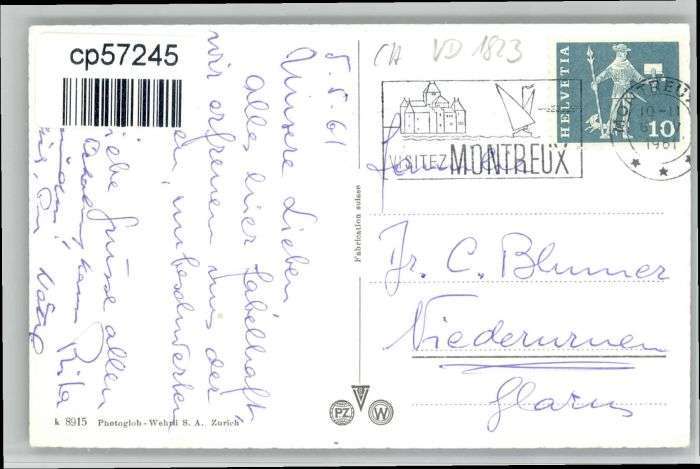 cp57245
CH VD 1823
5. 5. 61
Unsere Lieben
alles hier fabelhaft
wir erfreuen uns der
unbeschwerten
liebe Grüsse allen
Rita
HELVETIA
10
MONTREUX
1961
VISITEZ MONTREUX
Familie
Fr. C. Blumer
Niederurnen
Glarus
Fabrication suisse
k 8915 Photoglob-Wehrli S. A. Zürich
PZ W